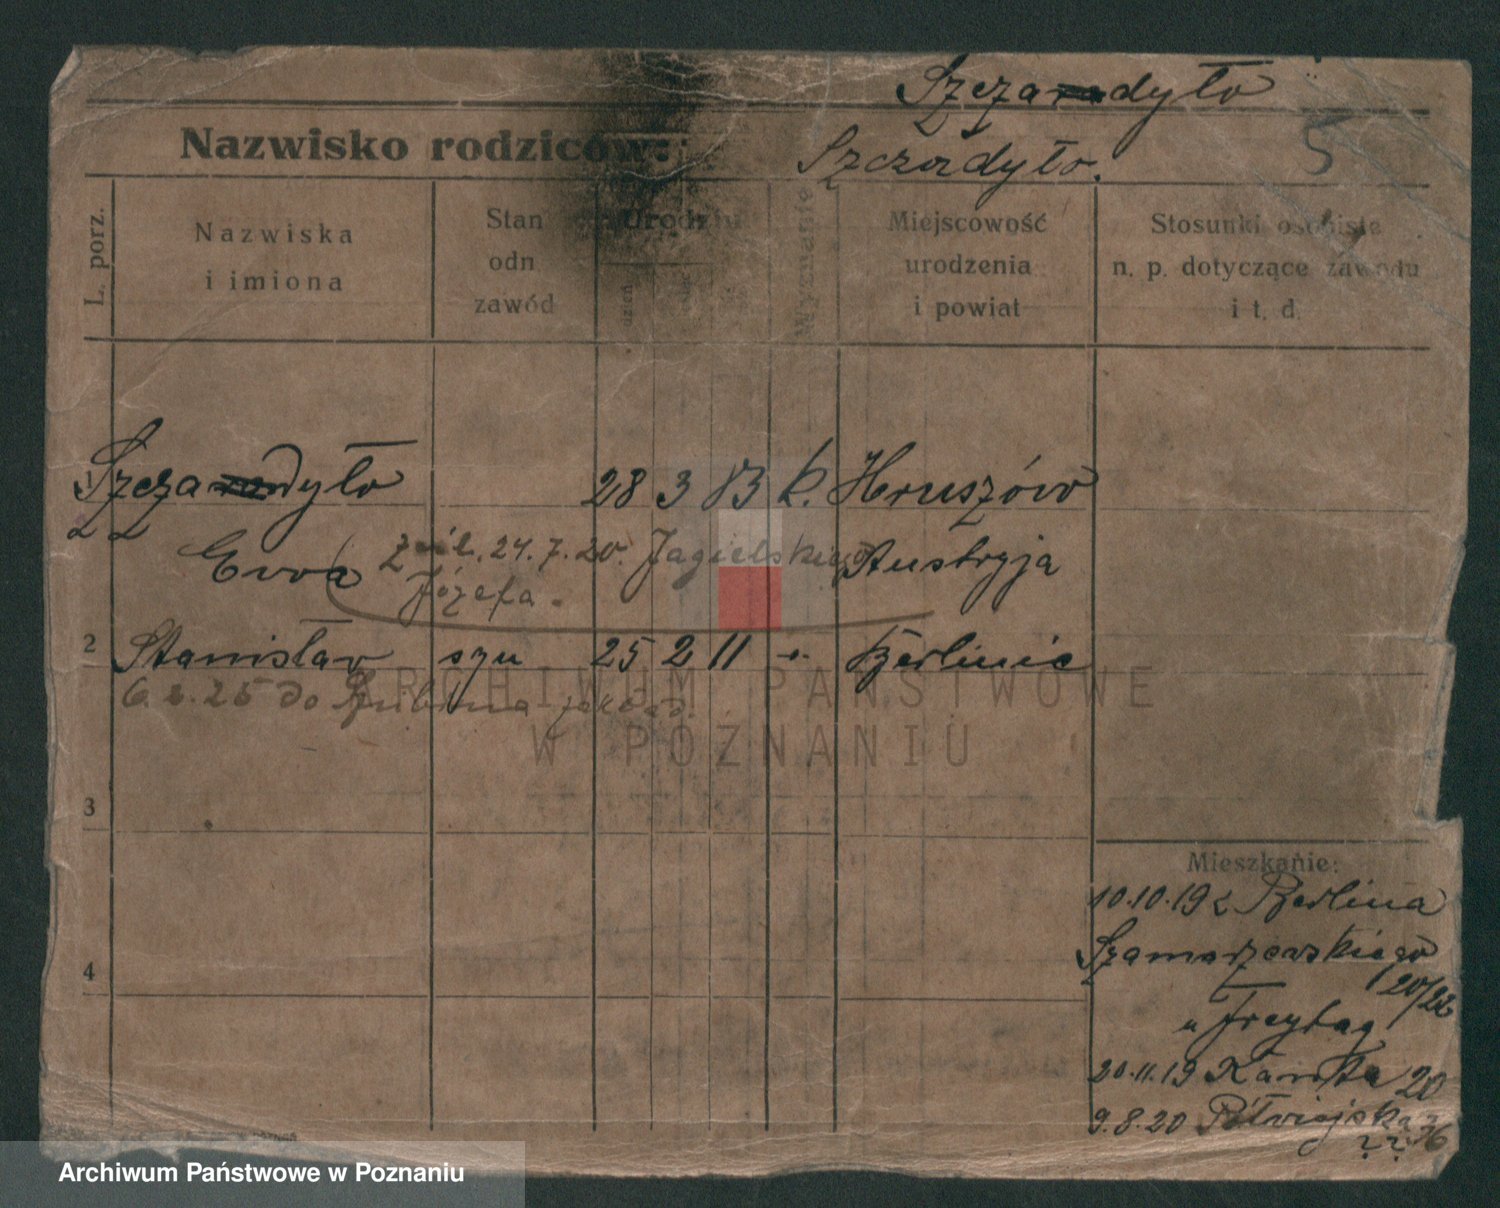 Szczadyło
Nazwisko rodziców:
Szczadyło.
5
L. porz.
Nazwiska
i imiona
Stan
odn
zawód
Urodz
dzień
Wyznanie
Miejscowość
urodzenia
i powiat
Stosunki osobiste
n. p. dotyczące zawodu
i t. d.
1 Szczadyło 28 3 83 k. Hruszów
Ewa 24.7.20. Jagielskiego Austryja
Józefa.
2 Stanisław syn 25 2 11 Berlinie
6. 2. 25 do
ARCHIWUM PAŃSTWOWE
W POZNANIU
3
4
Mieszkanie:
10.10.19 z Berlina
Szamarzewskiego
20/22
u Freytag
20.11.19 Kantka 20
9.8.20 Półwiejska 36
Archiwum Państwowe w Poznaniu